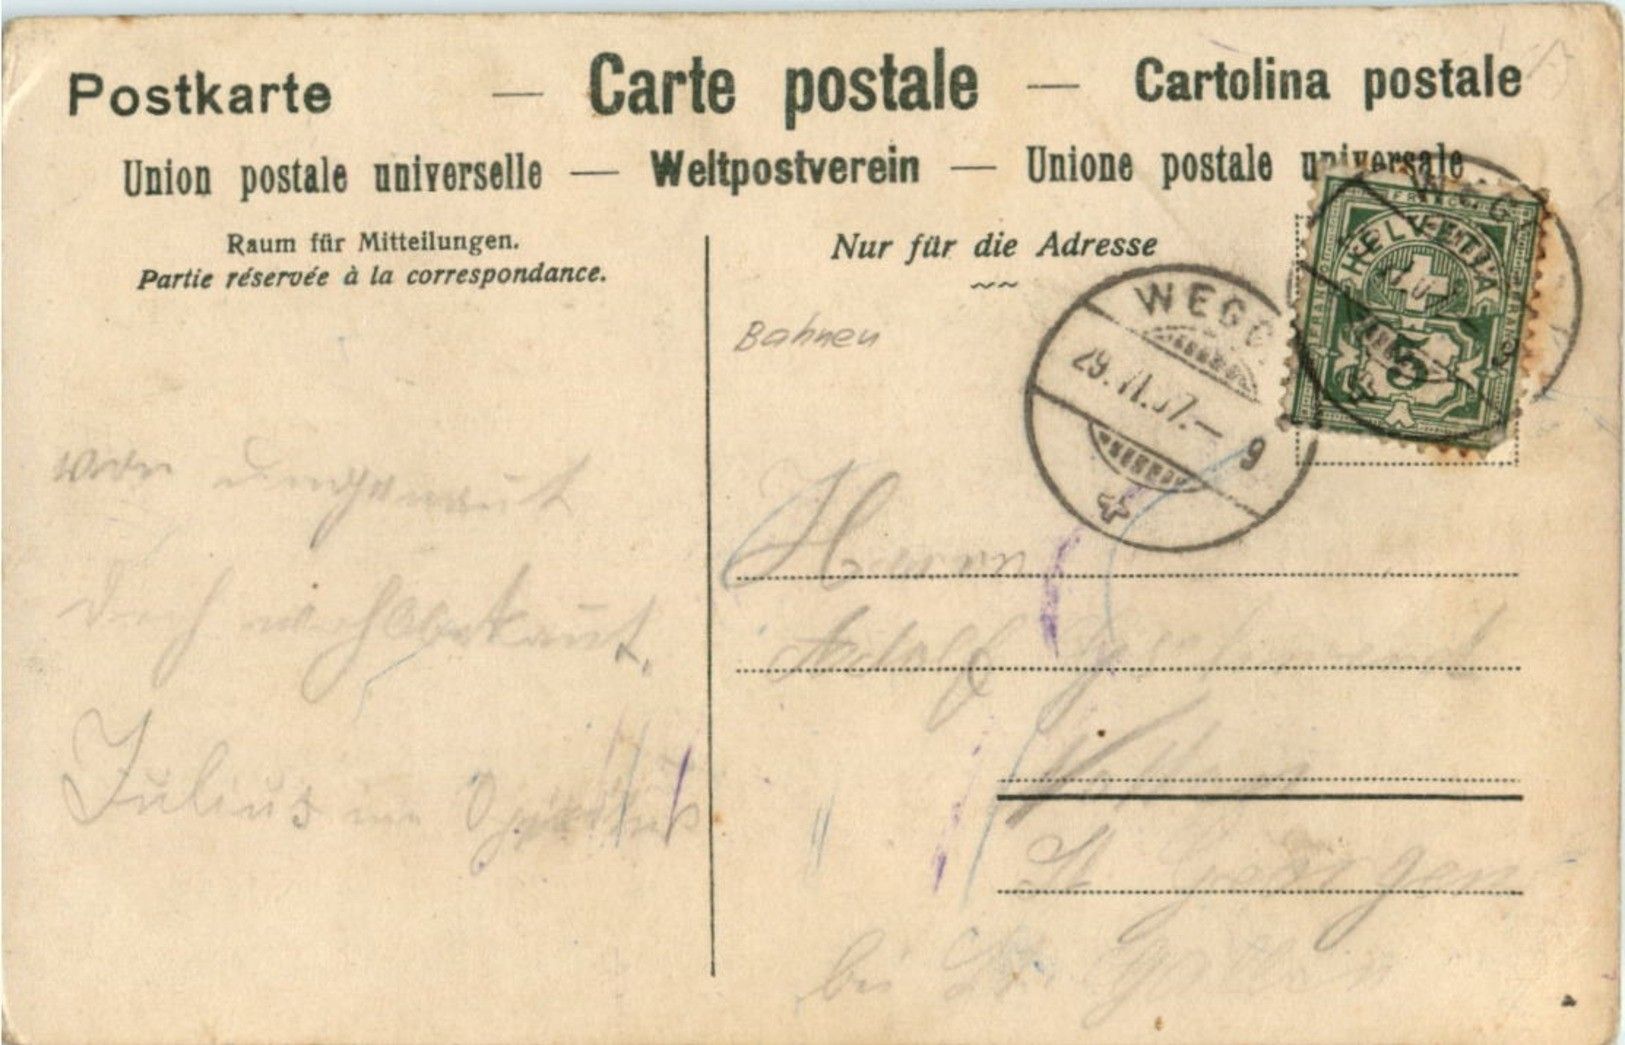 Postkarte — Carte postale — Cartolina postale
Union postale universelle — Weltpostverein — Unione postale universale
Raum für Mitteilungen.
Partie réservée à la correspondance.
Nur für die Adresse
Bahnen
WEGG
29.VI.07.— 9
WEGG
FRANCO
HELVETIA
5
von
doch wohlbekannt.
Julius
Herrn
Adolf
St. Georgen
bei St. Gallen